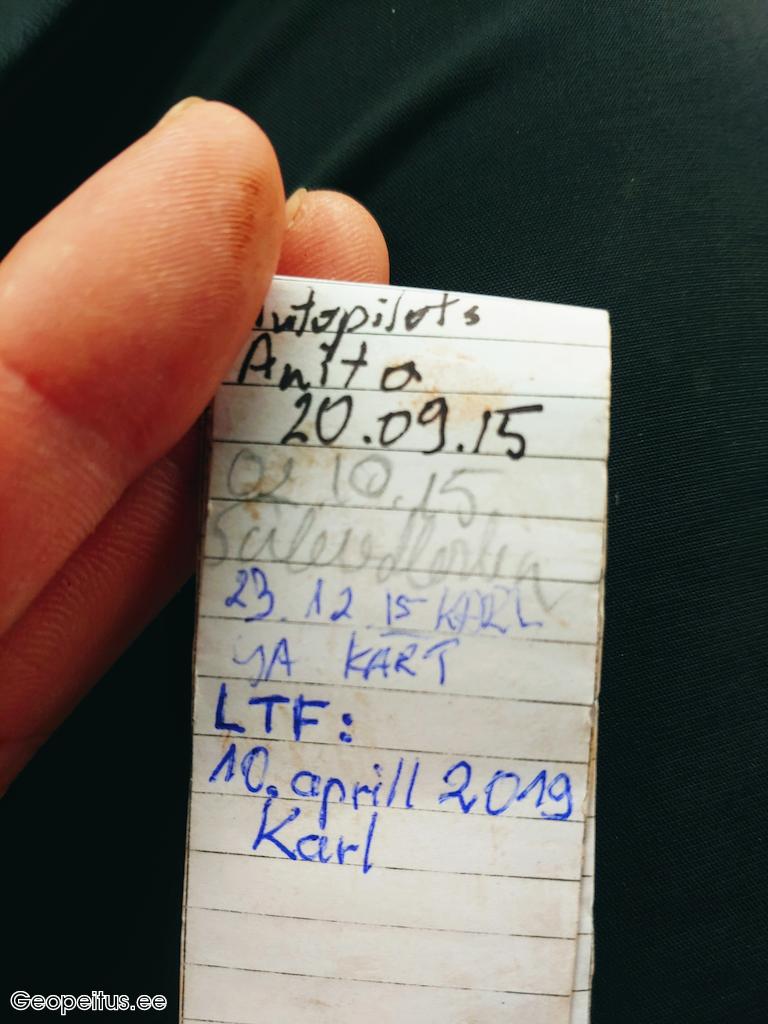 Autopilots
Anita
20.09.15
02.10.15
23.12.15 KARL
JA KART
LTF:
10. aprill 2019
Karl
Geopeitus.ee